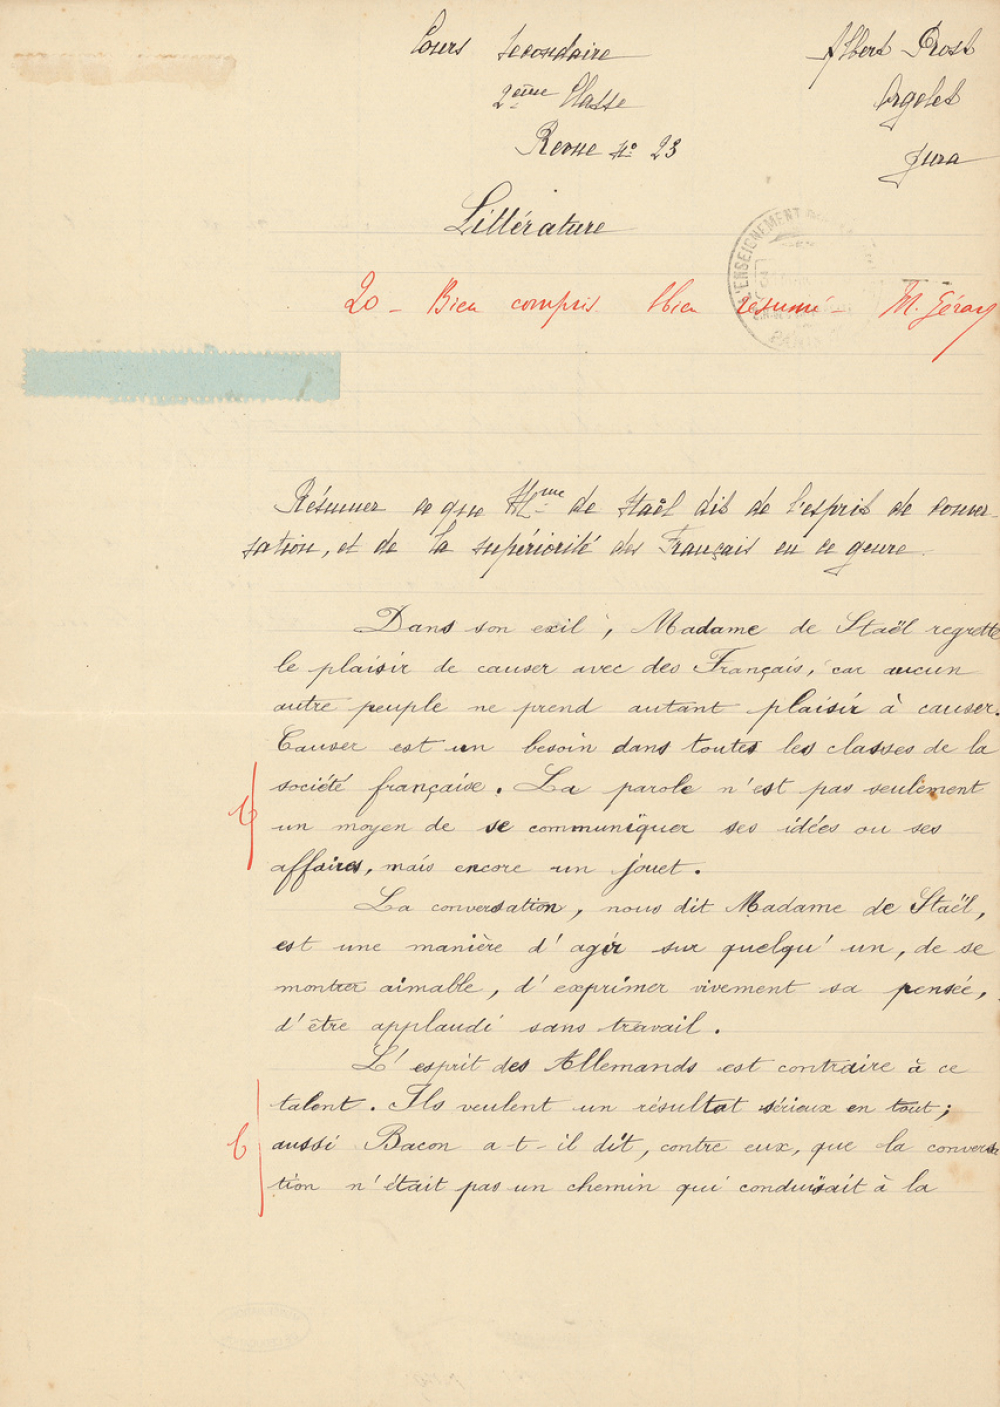 Cours Secondaire
Albert Prost
2ème Classe
Orgelet
Revue N° 23
Jura
Littérature
L'ENSEIGNEMENT
PARIS
20 - Bien compris Bien résumé - M. Gérary
Résumer ce que Mme de Staël dit de l'esprit de conver-
sation, et de la supériorité des Français en ce genre.
Dans son exil, Madame de Staël regrette
le plaisir de causer avec des Français, car aucun
autre peuple ne prend autant plaisir à causer.
Causer est un besoin dans toutes les classes de la
société française. La parole n'est pas seulement
un moyen de se communiquer ses idées ou ses
affaires, mais encore un jouet.
La conversation, nous dit Madame de Staël,
est une manière d'agir sur quelqu'un, de se
montrer aimable, d'exprimer vivement sa pensée,
d'être applaudi sans travail.
L'esprit des Allemands est contraire à ce
talent. Ils veulent un résultat sérieux en tout;
b aussi Bacon a-t-il dit, contre eux, que la conversa
tion n'était pas un chemin qui conduisait à la